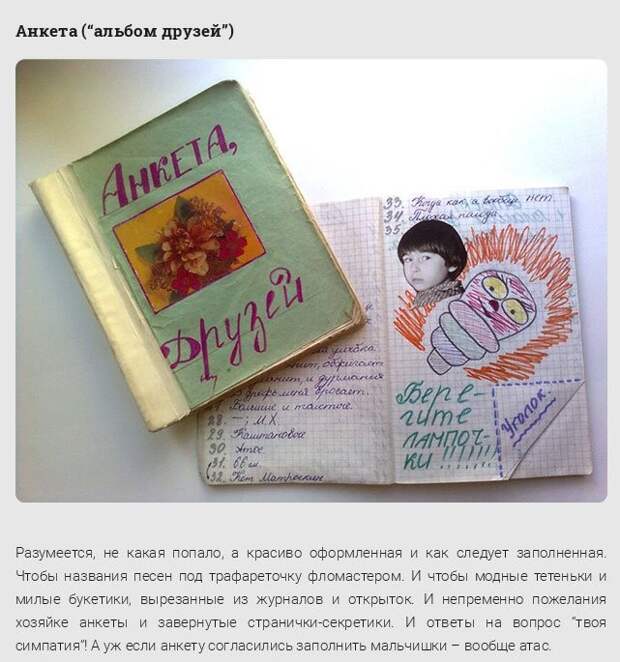 Анкета (“альбом друзей”)
АНКЕТА,
ДРУЗЕЙ
33. Когда как, а вообще нет.
34. Плохая погода.
35.
улыбка.
обжигает
и дурманит
бросает.
Большие и толстые.
28. — ; М.Х.
29. Каштановое
30.
31.
32. Кот Матроскин.
Бере-
гите
лампоч-
ки !!!!!!!
Уголок
Разумеется, не какая попало, а красиво оформленная и как следует заполненная.
Чтобы названия песен под трафареточку фломастером. И чтобы модные тетеньки и
милые букетики, вырезанные из журналов и открыток. И непременно пожелания
хозяйке анкеты и завернутые странички-секретики. И ответы на вопрос “твоя
симпатия”! А уж если анкету согласились заполнить мальчишки – вообще атас.